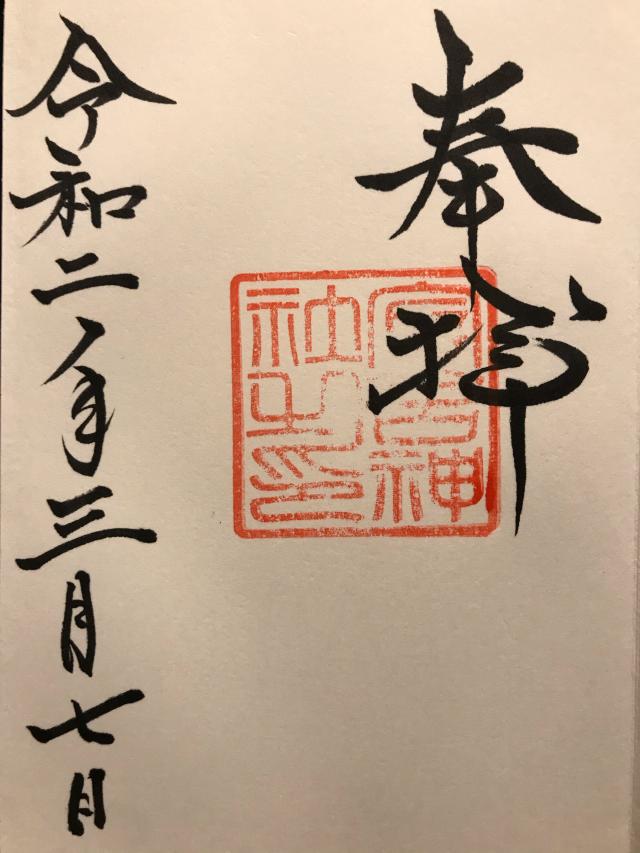 奉拝
神
社之印
令和二年三月七日